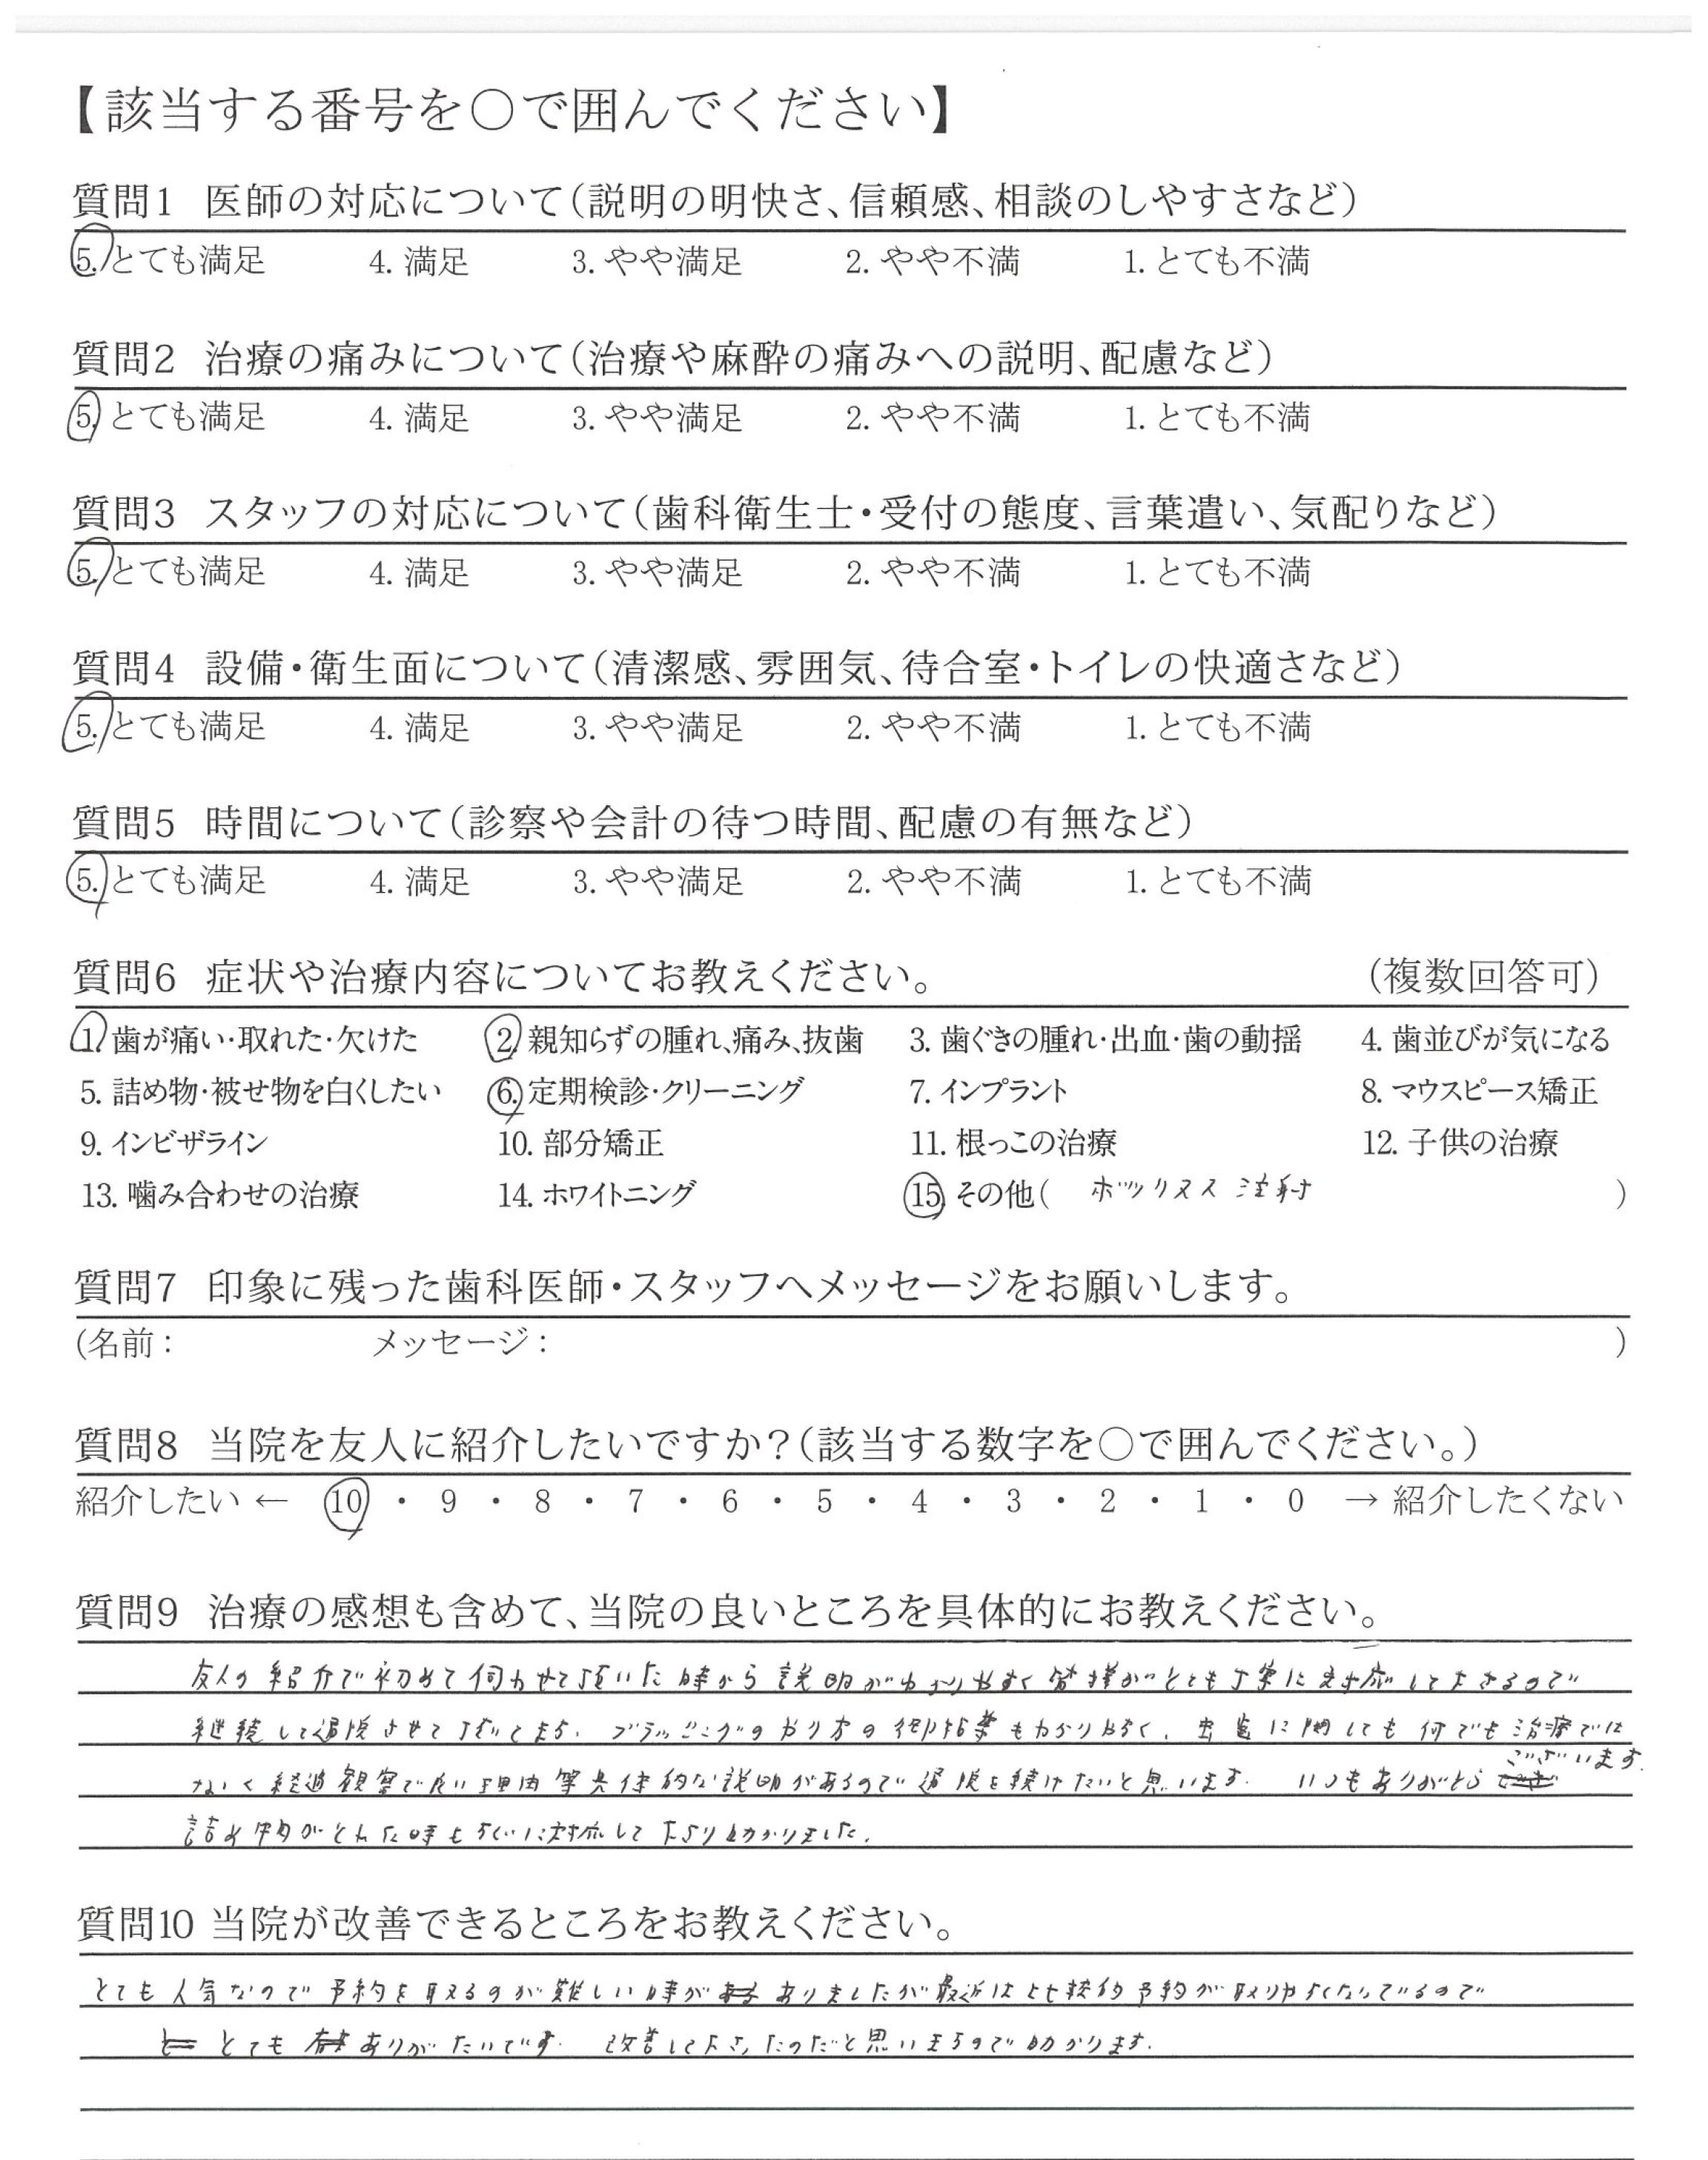 【該当する番号を○で囲んでください】
質問1 医師の対応について(説明の明快さ、信頼感、相談のしやすさなど)
5. とても満足 4. 満足 3. やや満足 2. やや不満 1. とても不満
質問2 治療の痛みについて(治療や麻酔の痛みへの説明、配慮など)
5. とても満足 4. 満足 3. やや満足 2. やや不満 1. とても不満
質問3 スタッフの対応について(歯科衛生士・受付の態度、言葉遣い、気配りなど)
5. とても満足 4. 満足 3. やや満足 2. やや不満 1. とても不満
質問4 設備・衛生面について(清潔感、雰囲気、待合室・トイレの快適さなど)
5. とても満足 4. 満足 3. やや満足 2. やや不満 1. とても不満
質問5 時間について(診察や会計の待つ時間、配慮の有無など)
5. とても満足 4. 満足 3. やや満足 2. やや不満 1. とても不満
質問6 症状や治療内容についてお教えください。 (複数回答可)
1. 歯が痛い・取れた・欠けた 2. 親知らずの腫れ、痛み、抜歯 3. 歯ぐきの腫れ・出血・歯の動揺 4. 歯並びが気になる
5. 詰め物・被せ物を白くしたい 6. 定期検診・クリーニング 7. インプラント 8. マウスピース矯正
9. インビザライン 10. 部分矯正 11. 根っこの治療 12. 子供の治療
13. 噛み合わせの治療 14. ホワイトニング 15. その他( ボツリヌス注射 )
質問7 印象に残った歯科医師・スタッフへメッセージをお願いします。
(名前: メッセージ: )
質問8 当院を友人に紹介したいですか?(該当する数字を○で囲んでください。)
紹介したい ← 10 ・ 9 ・ 8 ・ 7 ・ 6 ・ 5 ・ 4 ・ 3 ・ 2 ・ 1 ・ 0 → 紹介したくない
質問9 治療の感想も含めて、当院の良いところを具体的にお教えください。
友人の紹介で初めて伺わせて頂いた時から説明がわかりやすく皆様がとても丁寧に対応して下さるので
継続して通院させて頂いてます。ブラッシングのやり方の御指導もわかりやすく、虫歯に関しても何でも治療では
なく経過観察で良い理由等具体的な説明があるので通院を続けたいと思います。 いつもありがとうございます。
詰め物がとれた時もすぐに対応して下さり助かりました。
質問10 当院が改善できるところをお教えください。
とても人気なので予約を取るのが難しい時がありましたが最近は比較的予約が取りやすくなっているので
とてもありがたいです。 改善して下さったのだと思いますので助かります。